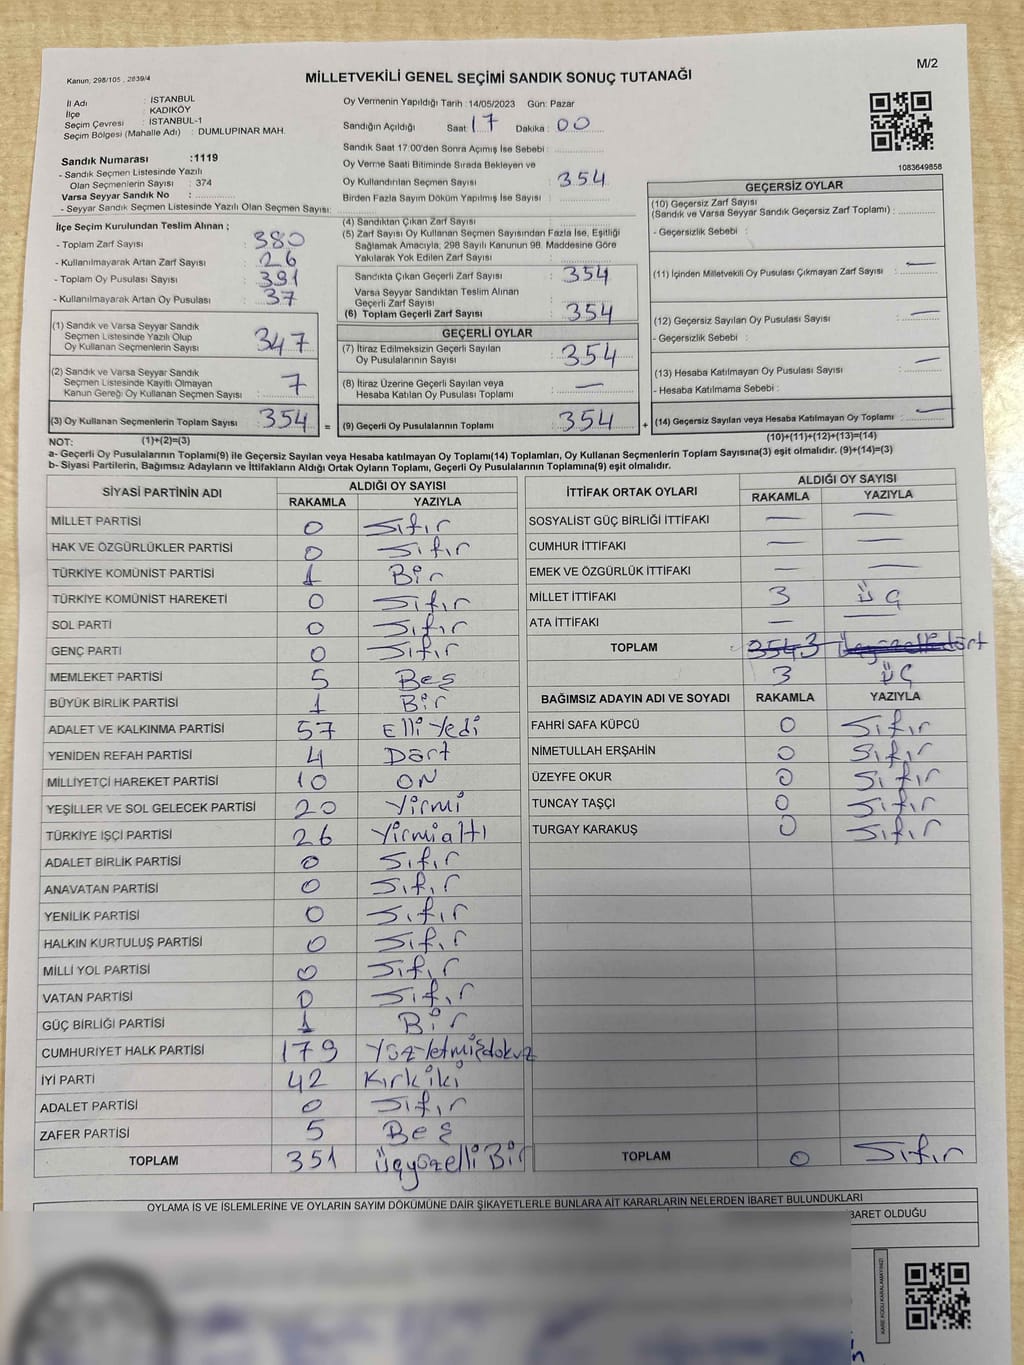 Kanun, 298/105 , 2839/4
MİLLETVEKİLİ GENEL SEÇİMİ SANDIK SONUÇ TUTANAĞI
M/2
İl Adı : İSTANBUL
İlçe : KADIKÖY
Seçim Çevresi : İSTANBUL-1
Seçim Bölgesi (Mahalle Adı) : DUMLUPINAR MAH.
Sandık Numarası :1119
- Sandık Seçmen Listesinde Yazılı
Olan Seçmenlerin Sayısı : 374
Varsa Seyyar Sandık No :
- Seyyar Sandık Seçmen Listesinde Yazılı Olan Seçmen Sayısı:
Oy Vermenin Yapıldığı Tarih :14/05/2023 Gün: Pazar
Sandığın Açıldığı Saat :17 Dakika : 00
Sandık Saat 17.00'den Sonra Açımış İse Sebebi :
Oy Verme Saati Bitiminde Sırada Bekleyen ve
Oy Kullandırılan Seçmen Sayısı : 354
Birden Fazla Sayım Döküm Yapılmış İse Sayısı :
1083649858
İlçe Seçim Kurulundan Teslim Alınan ;
- Toplam Zarf Sayısı : 380
- Kullanılmayarak Artan Zarf Sayısı : 26
- Toplam Oy Pusulası Sayısı : 391
- Kullanılmayarak Artan Oy Pusulası : 37
(1) Sandık ve Varsa Seyyar Sandık
Seçmen Listesinde Yazılı Olup
Oy Kullanan Seçmenlerin Sayısı : 347
(2) Sandık ve Varsa Seyyar Sandık
Seçmen Listesinde Kayıtlı Olmayan
Kanun Gereği Oy Kullanan Seçmen Sayısı : 7
(3) Oy Kullanan Seçmenlerin Toplam Sayısı : 354 =
(4) Sandıktan Çıkan Zarf Sayısı :
(5) Zarf Sayısı Oy Kullanan Seçmen Sayısından Fazla İse, Eşitliği
Sağlamak Amacıyla, 298 Sayılı Kanunun 98. Maddesine Göre
Yakılarak Yok Edilen Zarf Sayısı :
Sandıkta Çıkan Geçerli Zarf Sayısı : 354
Varsa Seyyar Sandıktan Teslim Alınan
Geçerli Zarf Sayısı :
(6) Toplam Geçerli Zarf Sayısı : 354
GEÇERLİ OYLAR
(7) İtiraz Edilmeksizin Geçerli Sayılan
Oy Pusulalarının Sayısı : 354
(8) İtiraz Üzerine Geçerli Sayılan veya
Hesaba Katılan Oy Pusulası Toplamı : —
(9) Geçerli Oy Pusulalarının Toplamı : 354 +
GEÇERSİZ OYLAR
(10) Geçersiz Zarf Sayısı
(Sandık ve Varsa Seyyar Sandık Geçersiz Zarf Toplamı) :
- Geçersizlik Sebebi :
(11) İçinden Milletvekili Oy Pusulası Çıkmayan Zarf Sayısı : —
(12) Geçersiz Sayılan Oy Pusulası Sayısı : —
- Geçersizlik Sebebi :
(13) Hesaba Katılmayan Oy Pusulası Sayısı : —
- Hesaba Katılmama Sebebi :
(14) Geçersiz Sayılan veya Hesaba Katılmayan Oy Toplamı : —
NOT: (1)+(2)=(3) (10)+(11)+(12)+(13)=(14)
a- Geçerli Oy Pusulalarının Toplamı(9) ile Geçersiz Sayılan veya Hesaba katılmayan Oy Toplamı(14) Toplamları, Oy Kullanan Seçmenlerin Toplam Sayısına(3) eşit olmalıdır. (9)+(14)=(3)
b- Siyasi Partilerin, Bağımsız Adayların ve İttifakların Aldığı Ortak Oyların Toplamı, Geçerli Oy Pusulalarının Toplamına(9) eşit olmalıdır.
SİYASİ PARTİNİN ADI ALDIĞI OY SAYISI
RAKAMLA YAZIYLA
MİLLET PARTİSİ 0 Sıfır
HAK VE ÖZGÜRLÜKLER PARTİSİ 0 Sıfır
TÜRKİYE KOMÜNİST PARTİSİ 1 Bir
TÜRKİYE KOMÜNİST HAREKETİ 0 Sıfır
SOL PARTİ 0 Sıfır
GENÇ PARTİ 0 Sıfır
MEMLEKET PARTİSİ 5 Beş
BÜYÜK BİRLİK PARTİSİ 1 Bir
ADALET VE KALKINMA PARTİSİ 57 Elli Yedi
YENİDEN REFAH PARTİSİ 4 Dört
MİLLİYETÇİ HAREKET PARTİSİ 10 ON
YEŞİLLER VE SOL GELECEK PARTİSİ 20 Yirmi
TÜRKİYE İŞÇİ PARTİSİ 26 Yirmialtı
ADALET BİRLİK PARTİSİ 0 Sıfır
ANAVATAN PARTİSİ 0 Sıfır
YENİLİK PARTİSİ 0 Sıfır
HALKIN KURTULUŞ PARTİSİ 0 Sıfır
MİLLİ YOL PARTİSİ 0 Sıfır
VATAN PARTİSİ 0 Sıfır
GÜÇ BİRLİĞİ PARTİSİ 1 Bir
CUMHURİYET HALK PARTİSİ 179 Yüzyetmişdokuz
İYİ PARTİ 42 Kırkiki
ADALET PARTİSİ 0 Sıfır
ZAFER PARTİSİ 5 Beş
TOPLAM 351 Üçyüzelli Bir
İTTİFAK ORTAK OYLARI ALDIĞI OY SAYISI
RAKAMLA YAZIYLA
SOSYALİST GÜÇ BİRLİĞİ İTTİFAKI — —
CUMHUR İTTİFAKI — —
EMEK VE ÖZGÜRLÜK İTTİFAKI — —
MİLLET İTTİFAKI 3 Üç
ATA İTTİFAKI — —
TOPLAM 354 3 Üçyüzellidört
3 Üç
BAĞIMSIZ ADAYIN ADI VE SOYADI RAKAMLA YAZIYLA
FAHRİ SAFA KÜPCÜ 0 Sıfır
NİMETULLAH ERŞAHİN 0 Sıfır
ÜZEYFE OKUR 0 Sıfır
TUNCAY TAŞÇI 0 Sıfır
TURGAY KARAKUŞ 0 Sıfır
TOPLAM 0 Sıfır
OYLAMA İŞ VE İŞLEMLERİNE VE OYLARIN SAYIM DÖKÜMÜNE DAİR ŞİKAYETLERLE BUNLARA AİT KARARLARIN NELERDEN İBARET BULUNDUKLARI
BARET OLDUĞU
KARE KODU KARALAMAYINIZ!